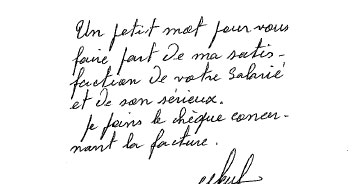 Un petit mot pour vous
faire part de ma satis-
faction de votre Salarié
et de son sérieux.
Je joins le chèque concer-
nant la facture.